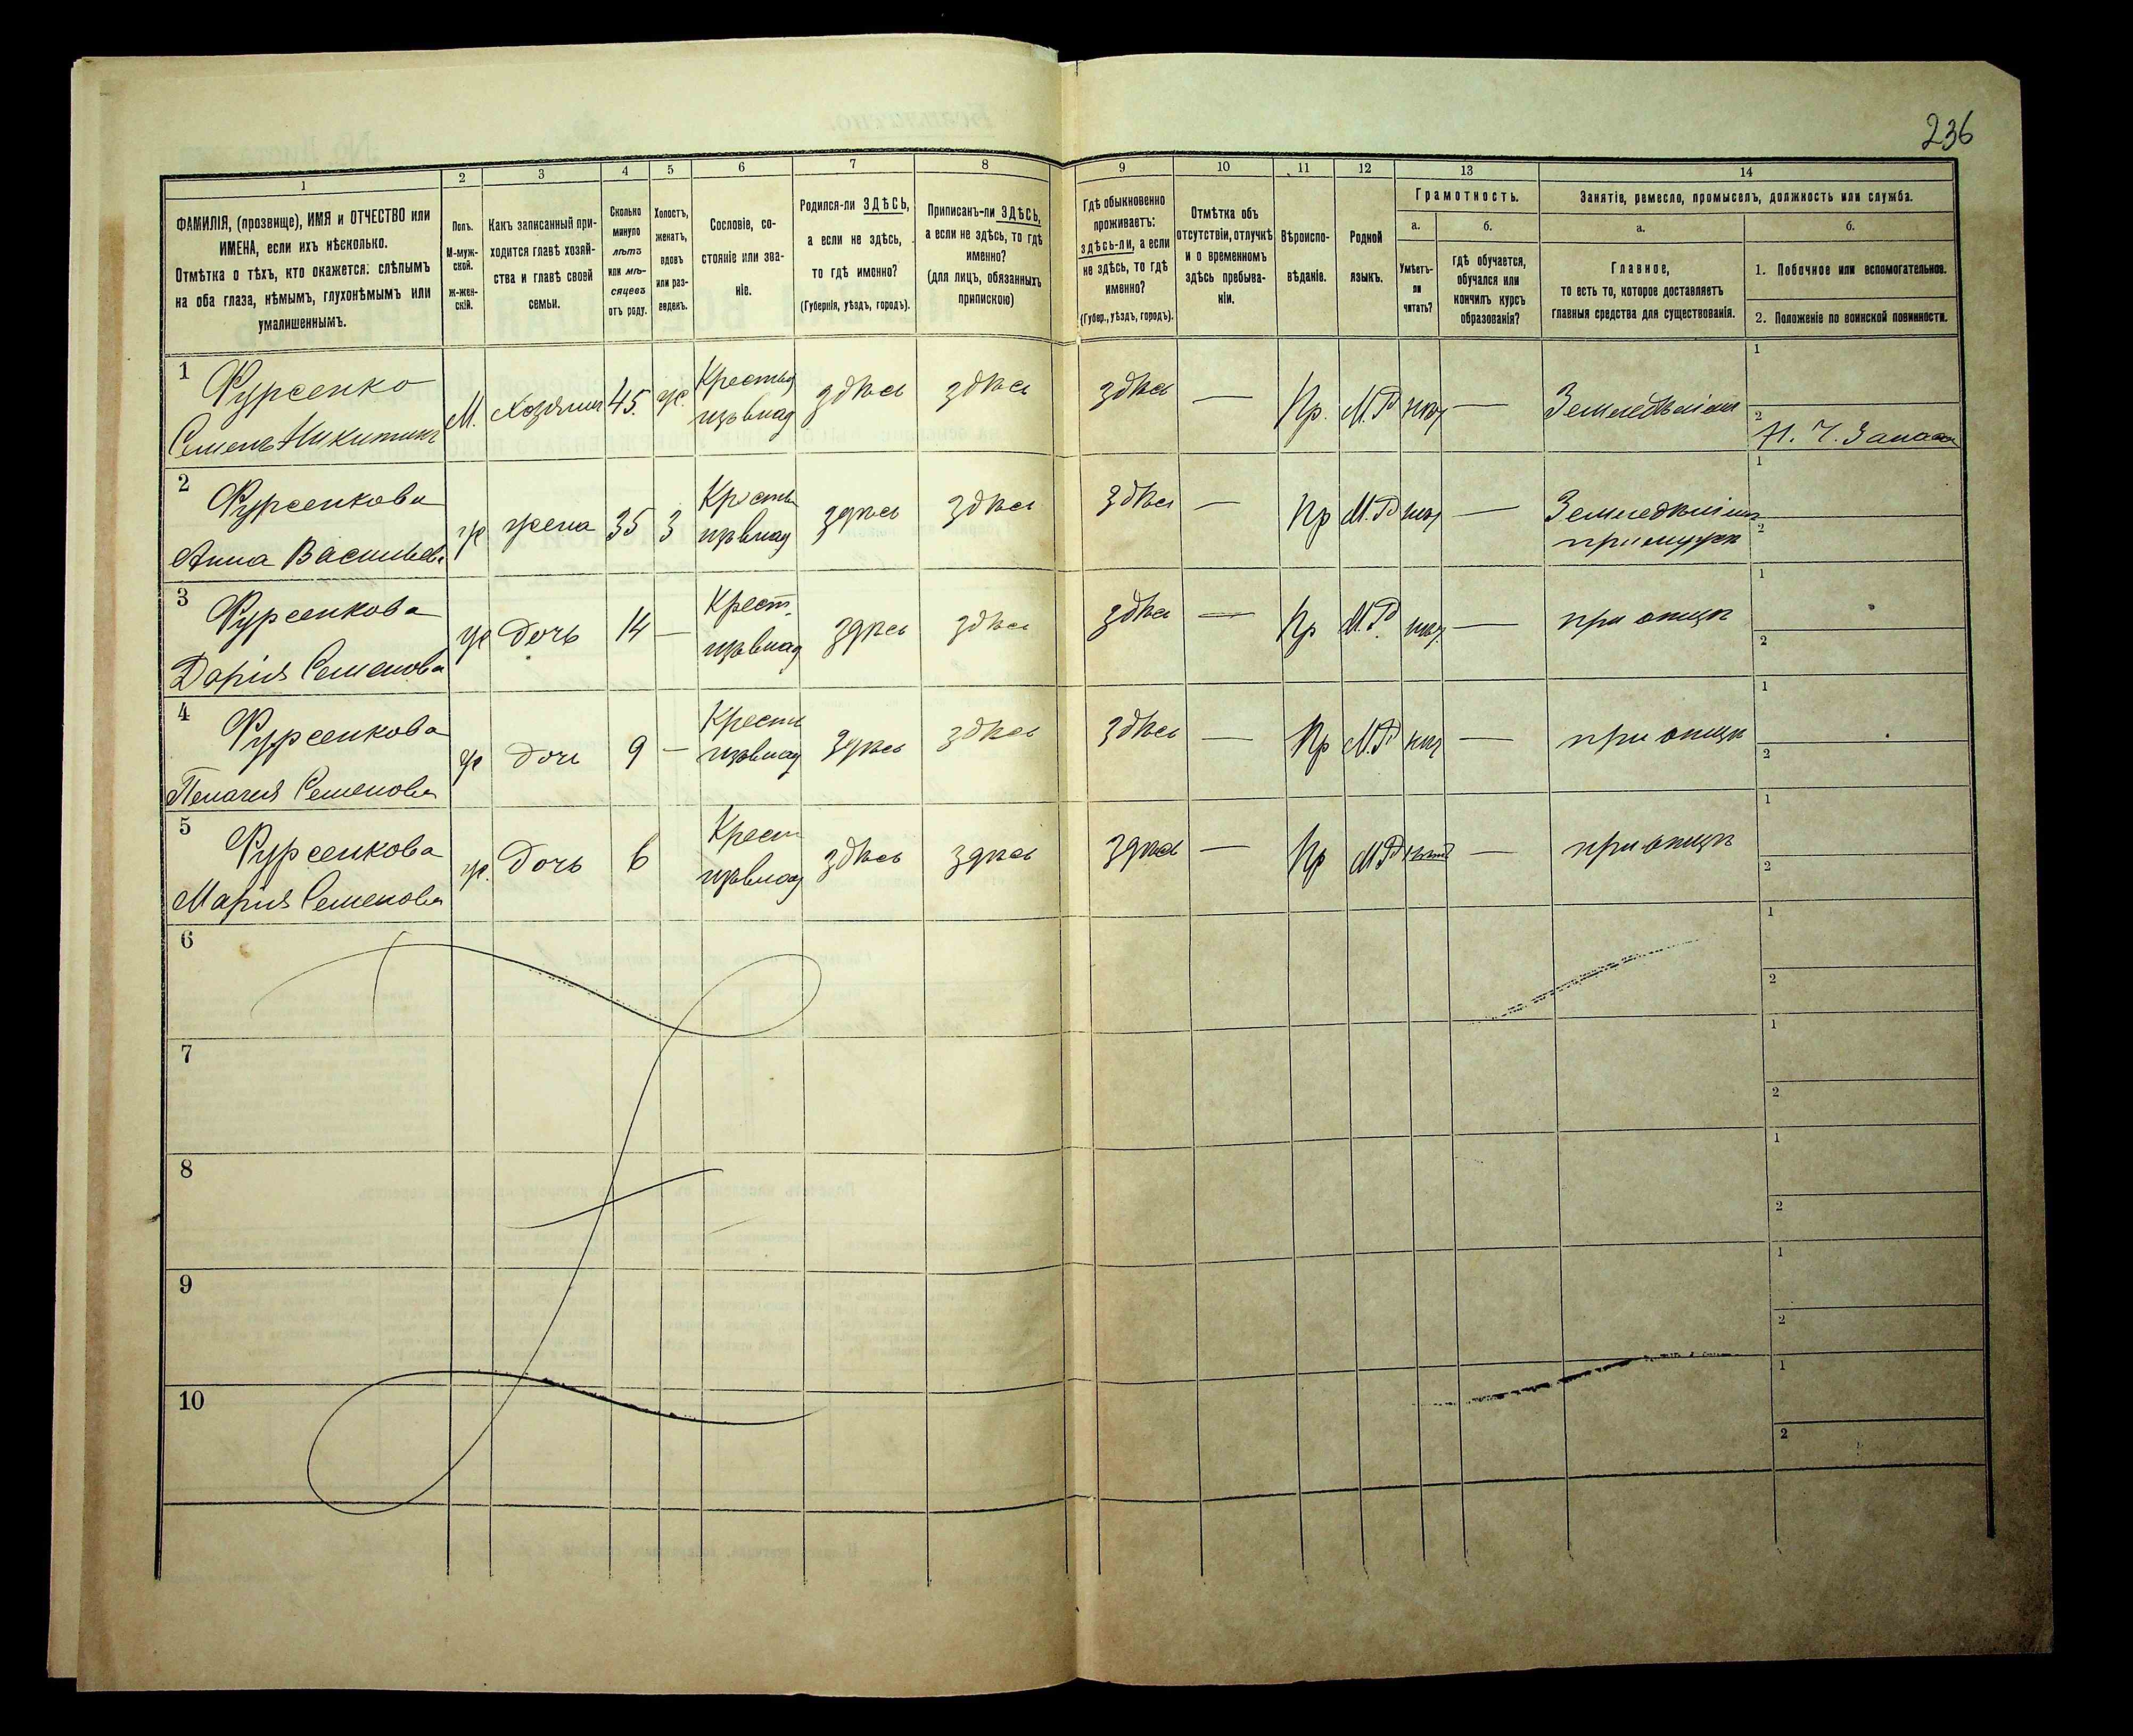 236
1 2 3 4 5 6 7 8 9 10 11 12 13 14
ФАМИЛІЯ, (прозвище), ИМЯ и ОТЧЕСТВО или
ИМЕНА, если ихъ нѣсколько.
Отмѣтка о тѣхъ, кто окажется: слѣпымъ
на оба глаза, нѣмымъ, глухонѣмымъ или
умалишеннымъ.
Полъ.
М-муж-
ской.
Ж-жен-
скій.
Какъ записанный при-
ходится главѣ хозяй-
ства и главѣ своей
семьи.
Сколько
минуло
лѣтъ
или мѣ-
сяцевъ
отъ роду.
Холостъ,
женатъ,
вдовъ
или раз-
веденъ.
Сословіе, со-
стояніе или зва-
ніе.
Родился-ли ЗДѢСЬ,
а если не здѣсь,
то гдѣ именно?
(Губернія, уѣздъ, городъ).
Приписанъ-ли ЗДѢСЬ,
а если не здѣсь, то гдѣ
именно?
(для лицъ, обязанныхъ
припискою)
Гдѣ обыкновенно
проживаетъ:
здѣсь-ли, а если
не здѣсь, то гдѣ
именно?
(Губер., уѣздъ, городъ).
Отмѣтка объ
отсутствіи, отлучкѣ
и о временномъ
здѣсь пребыва-
ніи.
Вѣроиспо-
вѣданіе.
Родной
языкъ.
Грамотность.
а.
Умѣетъ-
ли
читать?
б.
гдѣ обучается,
обучался или
кончилъ курсъ
образованія?
Занятіе, ремесло, промыселъ, должность или служба.
а.
Главное,
то есть то, которое доставляетъ
главныя средства для существованія.
б.
1. Побочное или вспомогательное.
2. Положеніе по воинской повинности.
1 Фурсенко
Семенъ Никитинъ
М. Хозяинъ 45. ж. Крестья
изъ влад
здѣсь здѣсь здѣсь — Пр. М.Р. — 1
2
2 Фурсенкова
Анна Васильева
ж жена 35 З Крестья
изъ влад
здѣсь здѣсь здѣсь — Пр М.Р — при мужѣ 1
2
3 Фурсенкова
Дарія Семенова
ж дочь 14 — Крест.
изъ влад
здѣсь здѣсь здѣсь — Пр М.Р — при отцѣ 1
2
4 Фурсенкова
Пелагія Семенова
ж дочь 9 — Крестья
изъ влад
здѣсь здѣсь здѣсь — Пр М.Р — при отцѣ 1
2
5 Фурсенкова
Марія Семенова
ж. дочь 6 Крест
изъ влад
здѣсь здѣсь здѣсь — Пр М.Р нѣтъ — при отцѣ 1
2
6 1
2
7 1
2
8 1
2
9 1
2
10 1
2